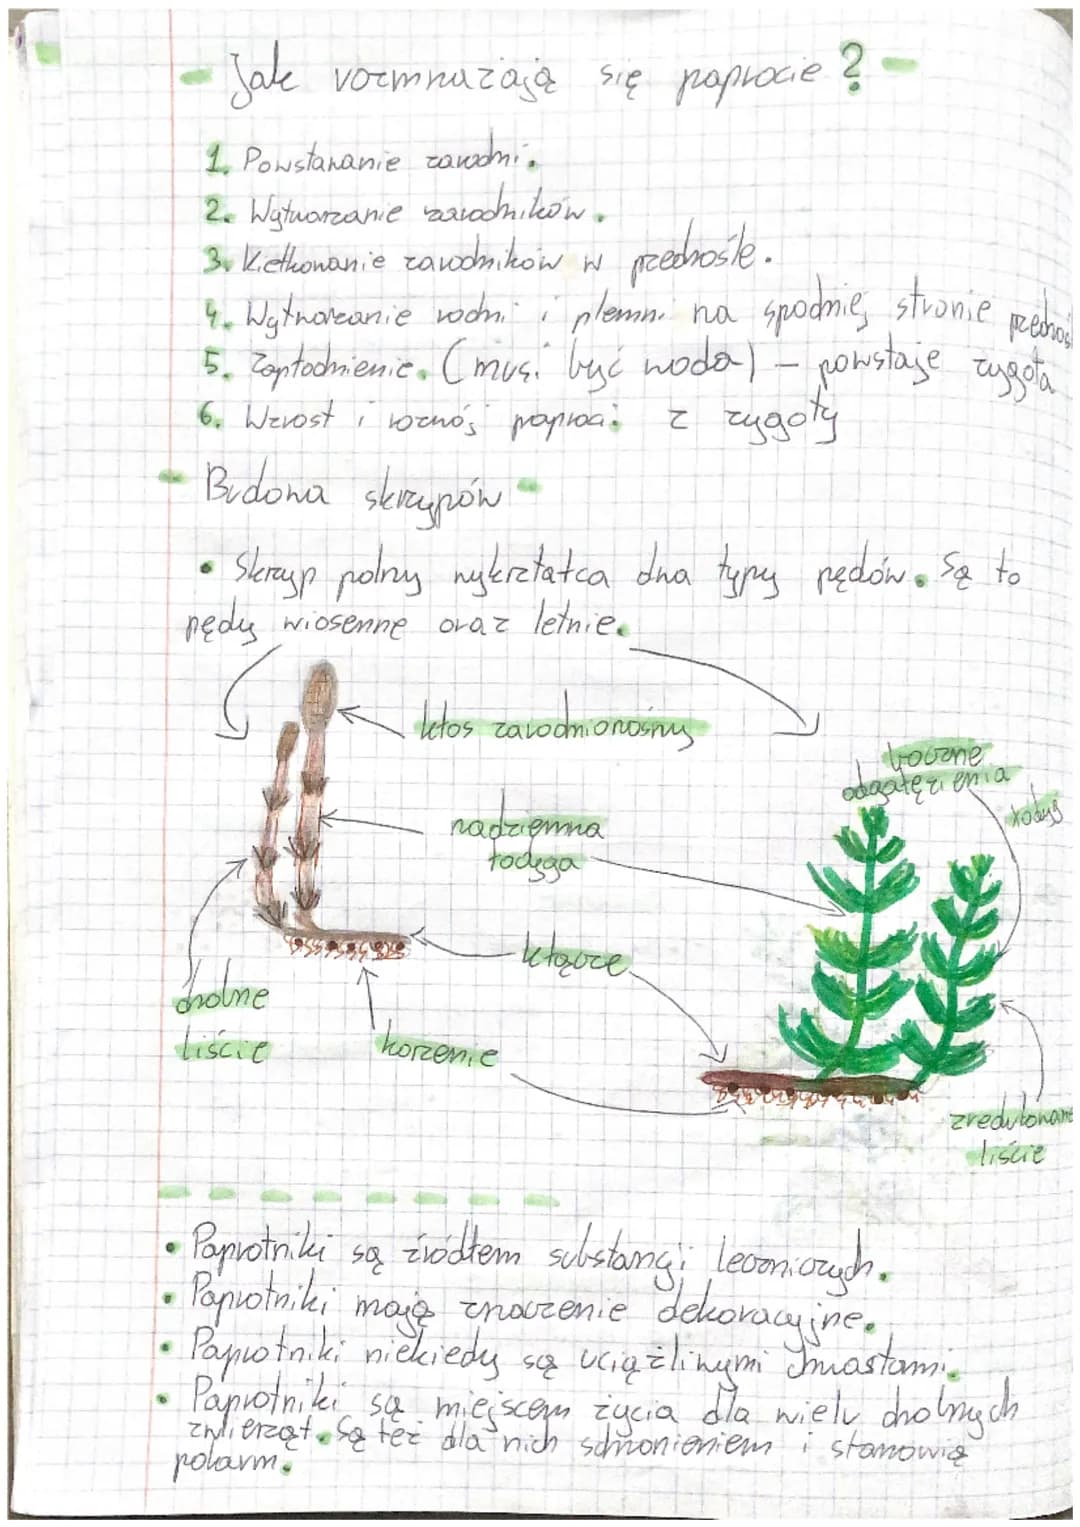 - Jak rozmnażają się paprocie? -
1. Powstawanie zarodni.
2. Wytwarzanie zarodników.
3. Kiełkowanie zarodników w przedrośle.
4. Wytwarzanie rodni i plemni na spodniej stronie przedroś
5. Zapłodnienie. (musi być woda) - powstaje zygota
6. Wzrost i rozwój paproci z zygoty
- Budowa skrzypów -
• Skrzyp polny wykształca dwa typy pędów. Są to
pędy wiosenne oraz letnie.
kłos zarodnionośny
boczne
odgałęzienia
łodygi
nadziemna
łodyga
kłącze
drobne
liście
korzenie
zredukowane
liście
• Paprotniki są źródłem substancji leczniczych.
• Paprotniki mają znaczenie dekoracyjne.
• Paprotniki niekiedy są uciążliwymi chwastami.
• Paprotniki są miejscem życia dla wielu drobnych
zwierząt. Są też dla nich schronieniem i stanowią
pokarm.